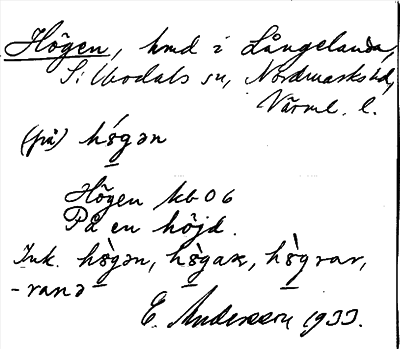 Högen, hmd i Långelanda,
Silbodals sn, Nordmarks hd,
Värml. l.
(på) hǿgən
Högen kb 06
På en höjd.
Ink. hø̀gən, hø̀gar, hø̀grar,
-rana
E. Andersson 1933.